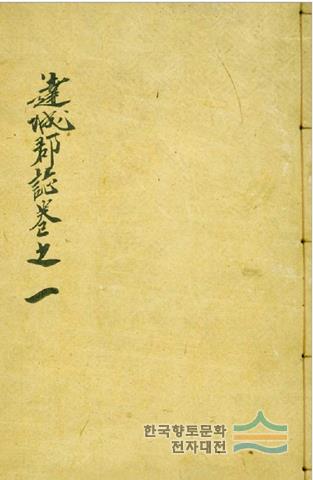 達城郡誌卷之一
한국향토문화
전자대전